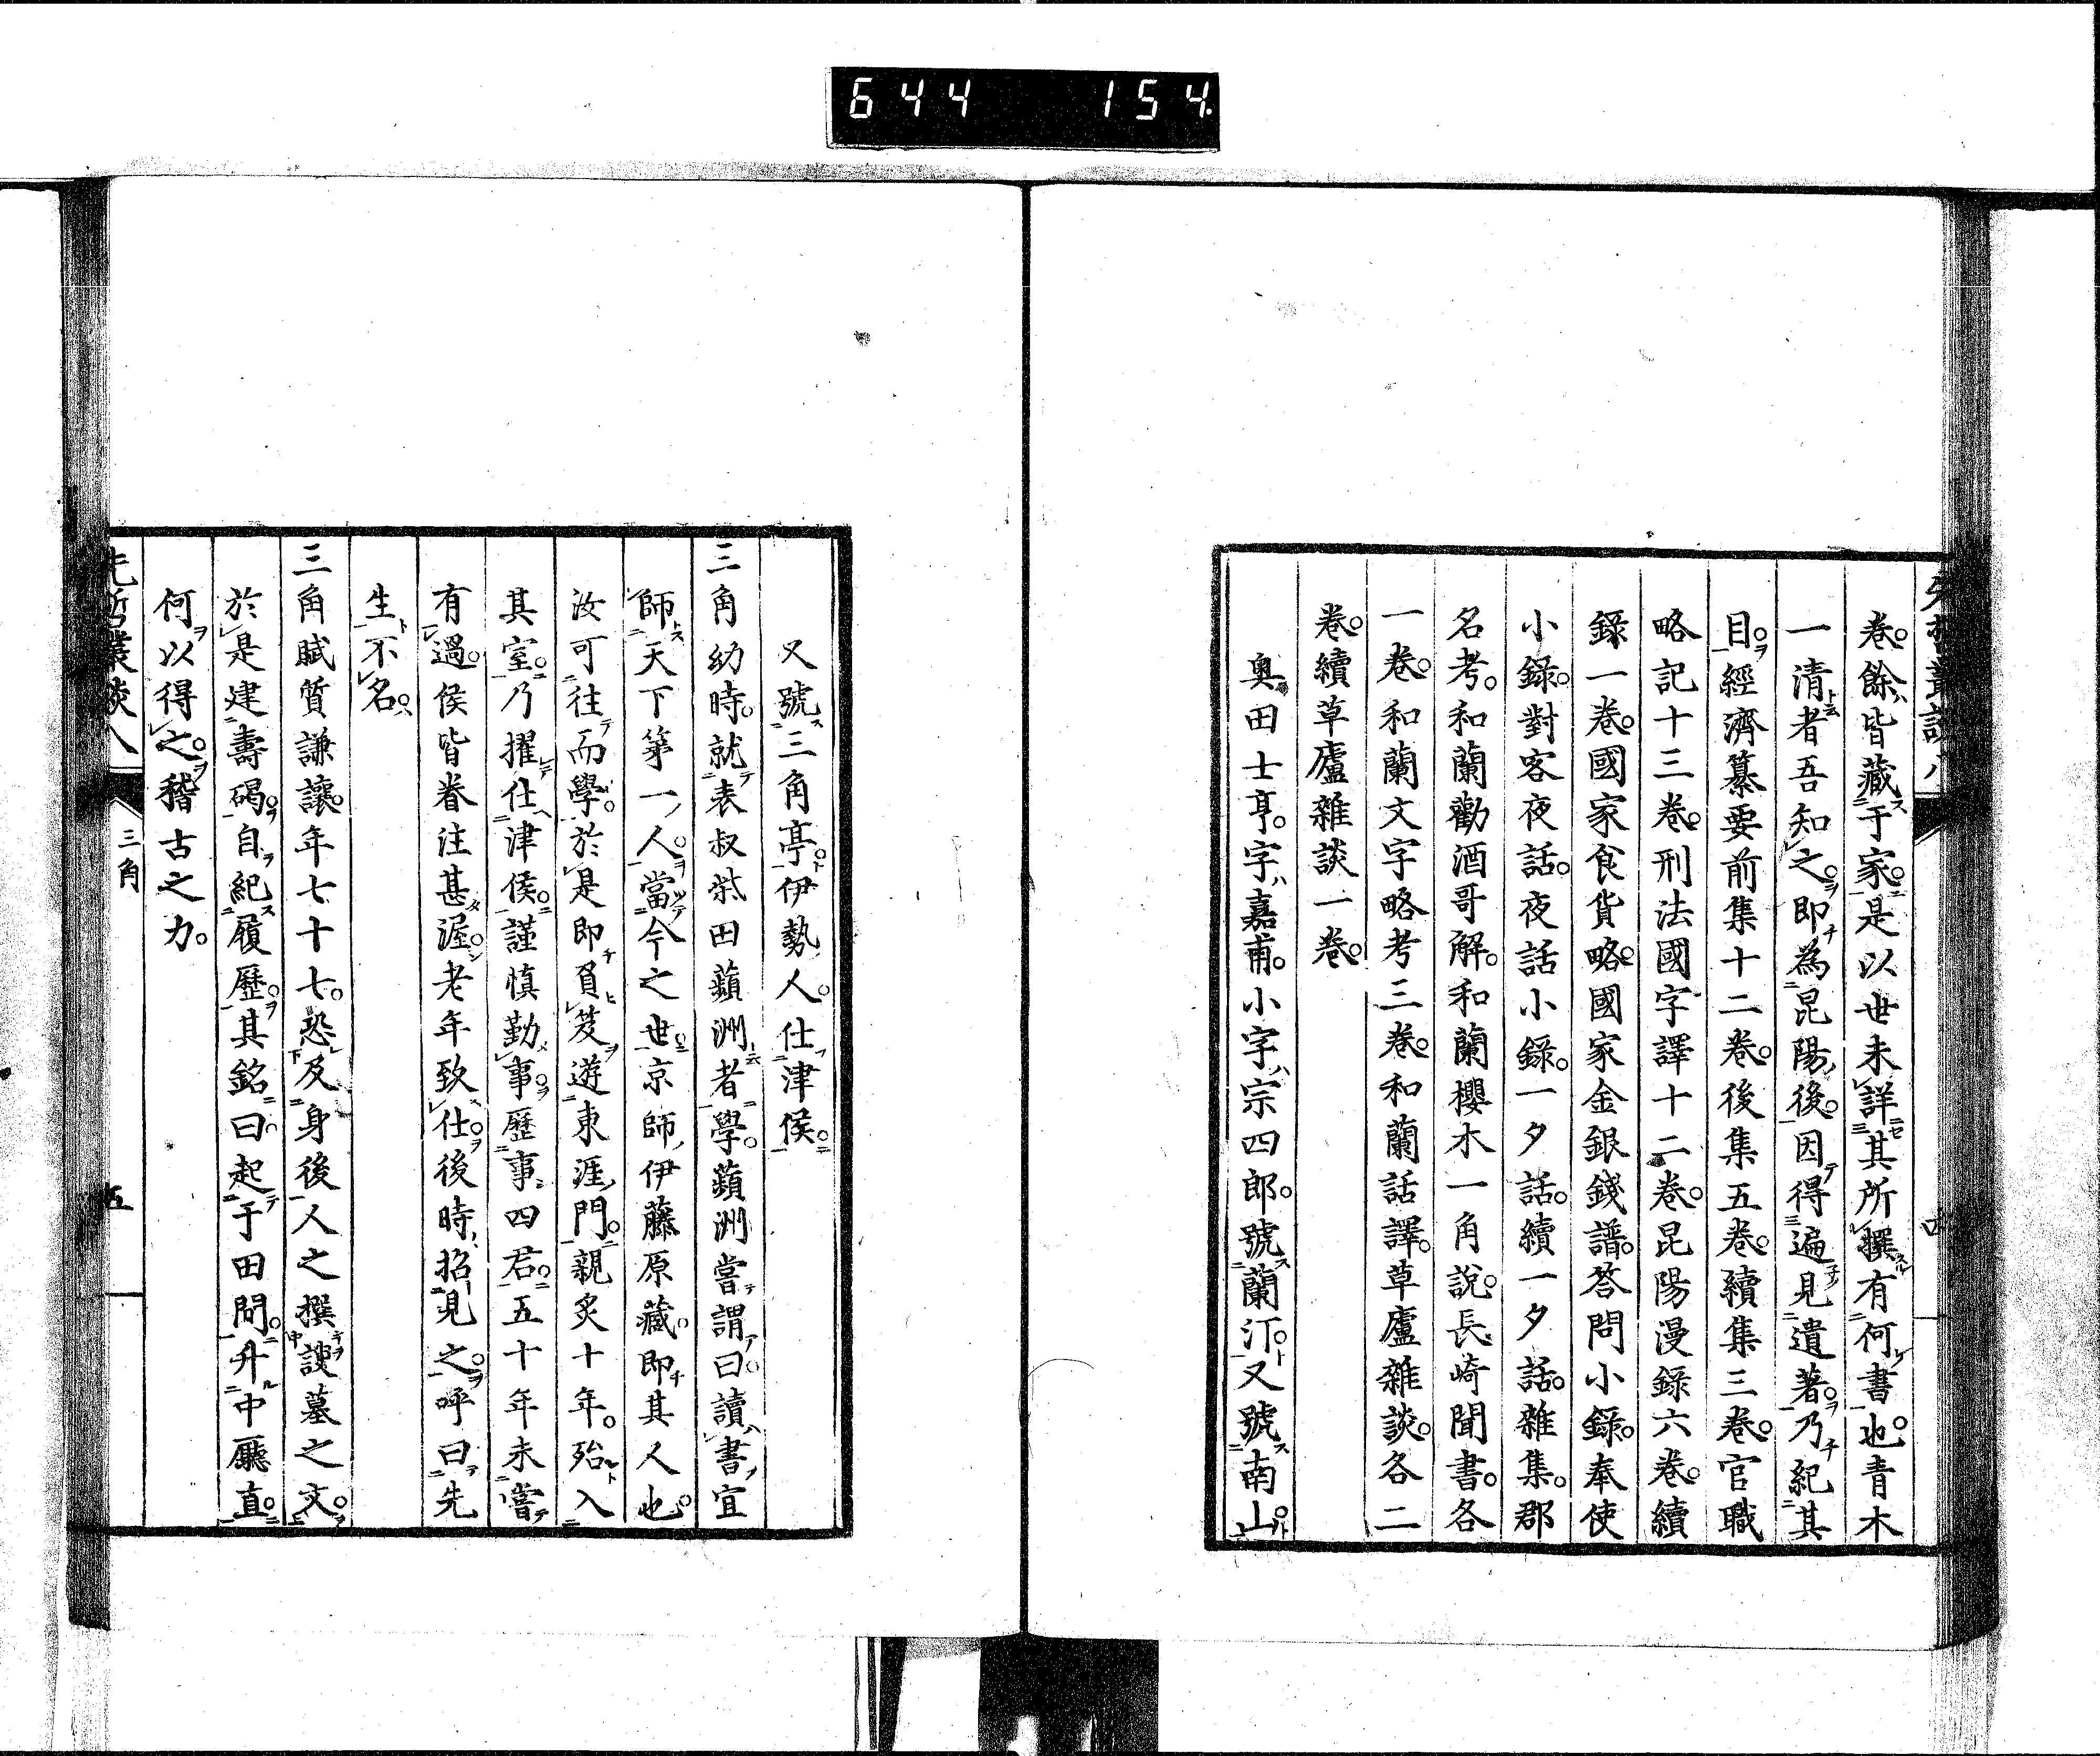 644 154
卷。餘皆藏于家。是以世未詳其所撰有何書也。青木
一清者吾知之。即為昆陽後。因得遍見遺著。乃紀其
目。經濟纂要前集十二卷。後集五卷。續集三卷。官職
略記十三卷。刑法國字譯十二卷。昆陽漫錄六卷。續
錄一卷。國家食貨略。國家金銀錢譜。答問小錄。奉使
小錄。對客夜話。夜話小錄。一夕話。續一夕話。雜集。郡
名考。和蘭勸酒哥解。和蘭櫻木一角說。長崎聞書。各
一卷。和蘭文字略考三卷。和蘭話譯。草廬雜談。各二
卷。續草廬雜談一卷。
奧田士亨。字嘉甫。小字宗四郎。號蘭汀。又號南山。
又號三角亭。伊勢人。仕津侯。
三角幼時。就表叔柴田蘋洲者學。蘋洲嘗謂曰。讀書宜
師天下第一人。當今之世。京師伊藤原藏。即其人也。
汝可往而學。於是即負笈遊東涯門。親炙十年。殆入
其室。乃擢仕津侯。謹慎勤事。歷事四君。五十年未嘗
有過。侯皆眷注甚渥。老年致仕。後時招見之。呼曰先
生不名。
三角賦質謙讓。年七十七。恐及身後人之撰諛墓之文。
於是建壽碣。自紀履歷。其銘曰。起于田間。升中廳直。
何以得之。稽古之力。
先哲叢談八
三角
五